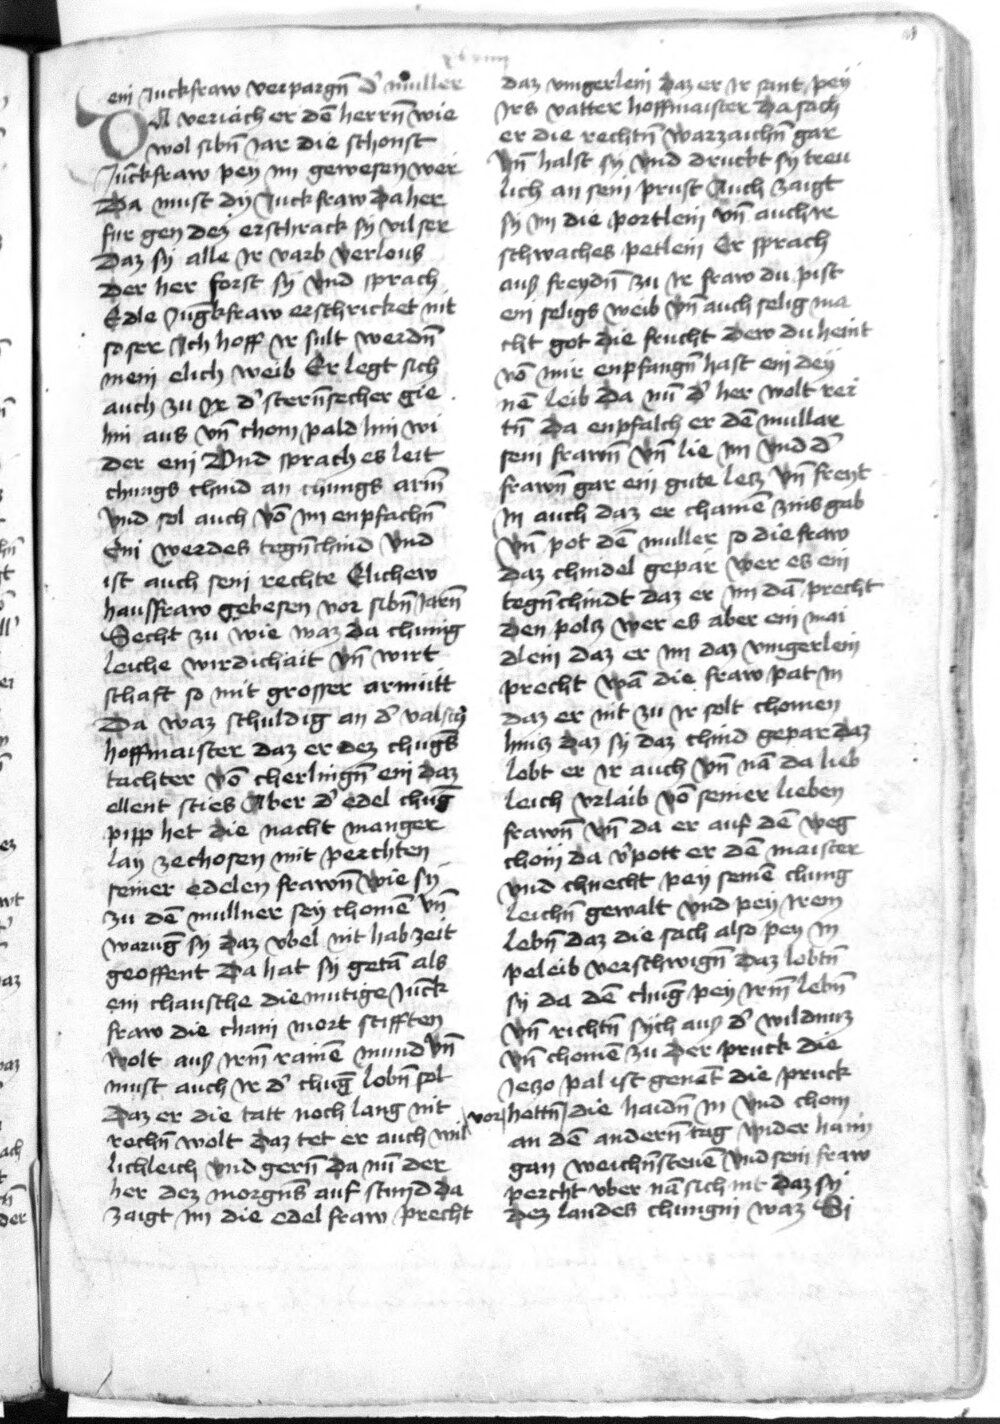 ein Junckfraw verpargn̄ d' müller
Da veriach er den̄ herrn̄ wie
wol sibn̄ iar die schonst
Juckfraw pey im gewesen wer
Da must dy Junckfraw da her
fur gen dez erschrack sy vil ser
Daz sy alle ir varb verlous
Der her forst sy vnd sprach
Edle Jungkfraw erschricket nit
so ser Ich hoff ir sult werdn̄
mein elich weib Er legt sich
auch zu ir d' sternsecher gie
hin aus vn̄ chom pald hin wi
der ein Vnd sprach es leit
chungs chind an chungs arm̄
vnd sol auch vō im enpfachn̄
Ein werdes tegn̄chind vnd
ist auch sein rechte Elichew
haussfraw gebesen vor sibn̄ Jarn̄
Secht zu wie waz da chunig
leiche wirdichait vn̄ wirt
schaft so mit grosser armütt
Da waz schuldig an d' valsch
hoffmaister daz er dez chugs̄
tachter vō cherlingn̄ ein daz
ellent sties Aber d' edel chuḡ
pipp het die nacht manger
lay ze chosen mit perchten
seiner edelen frawn̄ wie sy
zu dē mullner sey chomē vn̄
waruḡ sy daz vbel nit hab zeit
geoffent Da hat sy getā als
ein chausche diemutige Junck
fraw die chain mort stifften
wolt auß irm̄ rainē mund vn̄
must auch ir d' chuḡ lobn̄ sol
Daz er die tatt noch lang nit
rechn̄ wolt daz tet er auch wil
lichleich vnd gern̄ Da nū der
her dez morgn̄s auf stund da
zaigt im die edel fraw precht
daz vingerlein daz er ir sant pey
irs vatter hoffmaister Da sach
er die rechtn̄ warzaichn̄ gar
vn̄ halst sy vnd druckt sy treu
lich an sein prust Auch zaigt
sy im die portlein vn̄ auch ir
schwaches petlein Er sprach
auß freydn̄ zu ir fraw du pist
ein seligs weib vn̄ auch selig ma
cht got die frucht dew du heint
vō mir enpfangn̄ hast ein dey
nē leib Da nū d' her wolt rei
tn̄ da enpfalch er dē mullar
sein frawn̄ vn̄ lie im vnd d'
frawn̄ gar ein gute lecz vn̄ freyt
in auch daz er chainē zins gab
vn̄ pot dē muller so die fraw
daz chindel gepar wer es ein
tegn̄chindt daz er im dā precht
den polcz wer es aber ein mai
dlein daz er im daz vingerlein
precht wā die fraw pat in
daz er nit zu ir solt chomen
hincz daz sy daz chind gepar daz
lobt er ir auch vn̄ nā da lieb
leich vrlaib vō seiner lieben
frawn̄ vn̄ da er auf dē weg
chom da v'pott er dē maister
vnd chnecht pey seinē chung
leichn̄ gewalt vnd pey irem
lebn̄ daz die sach also pey in
peleib verschwign̄ daz lobtn̄
sy da dē chuḡ pey irm̄ lebn̄
vn̄ richtn̄ sych auß d' wildnuz
vn̄ chomē zu der pruck die
ieczo pal ist genēt die pruck
vor hettn̄ die haidn̄ in vnd chom
an dē andern̄ tag wider haim
gan weichn̄steuē vnd sein fraw
percht vber nā sich nit daz sy
dez landes chungin waz Si